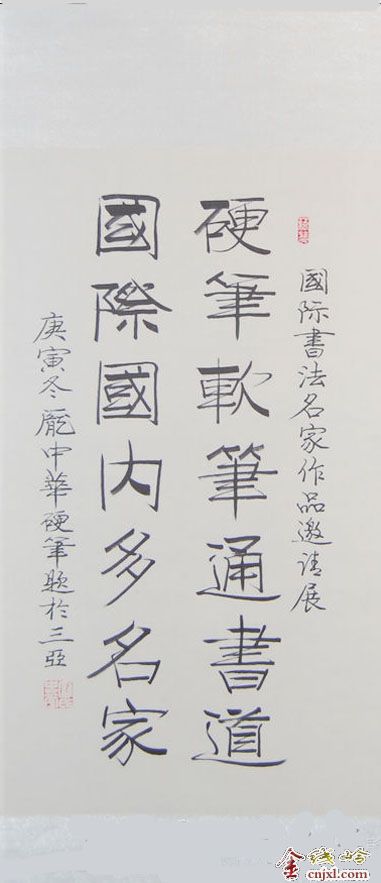 國际書法名家作品邀请展
硬筆軟筆通書道
國際國内多名家
庚寅冬龐中華硬筆题於三亞
金线岭
cnjxl.com